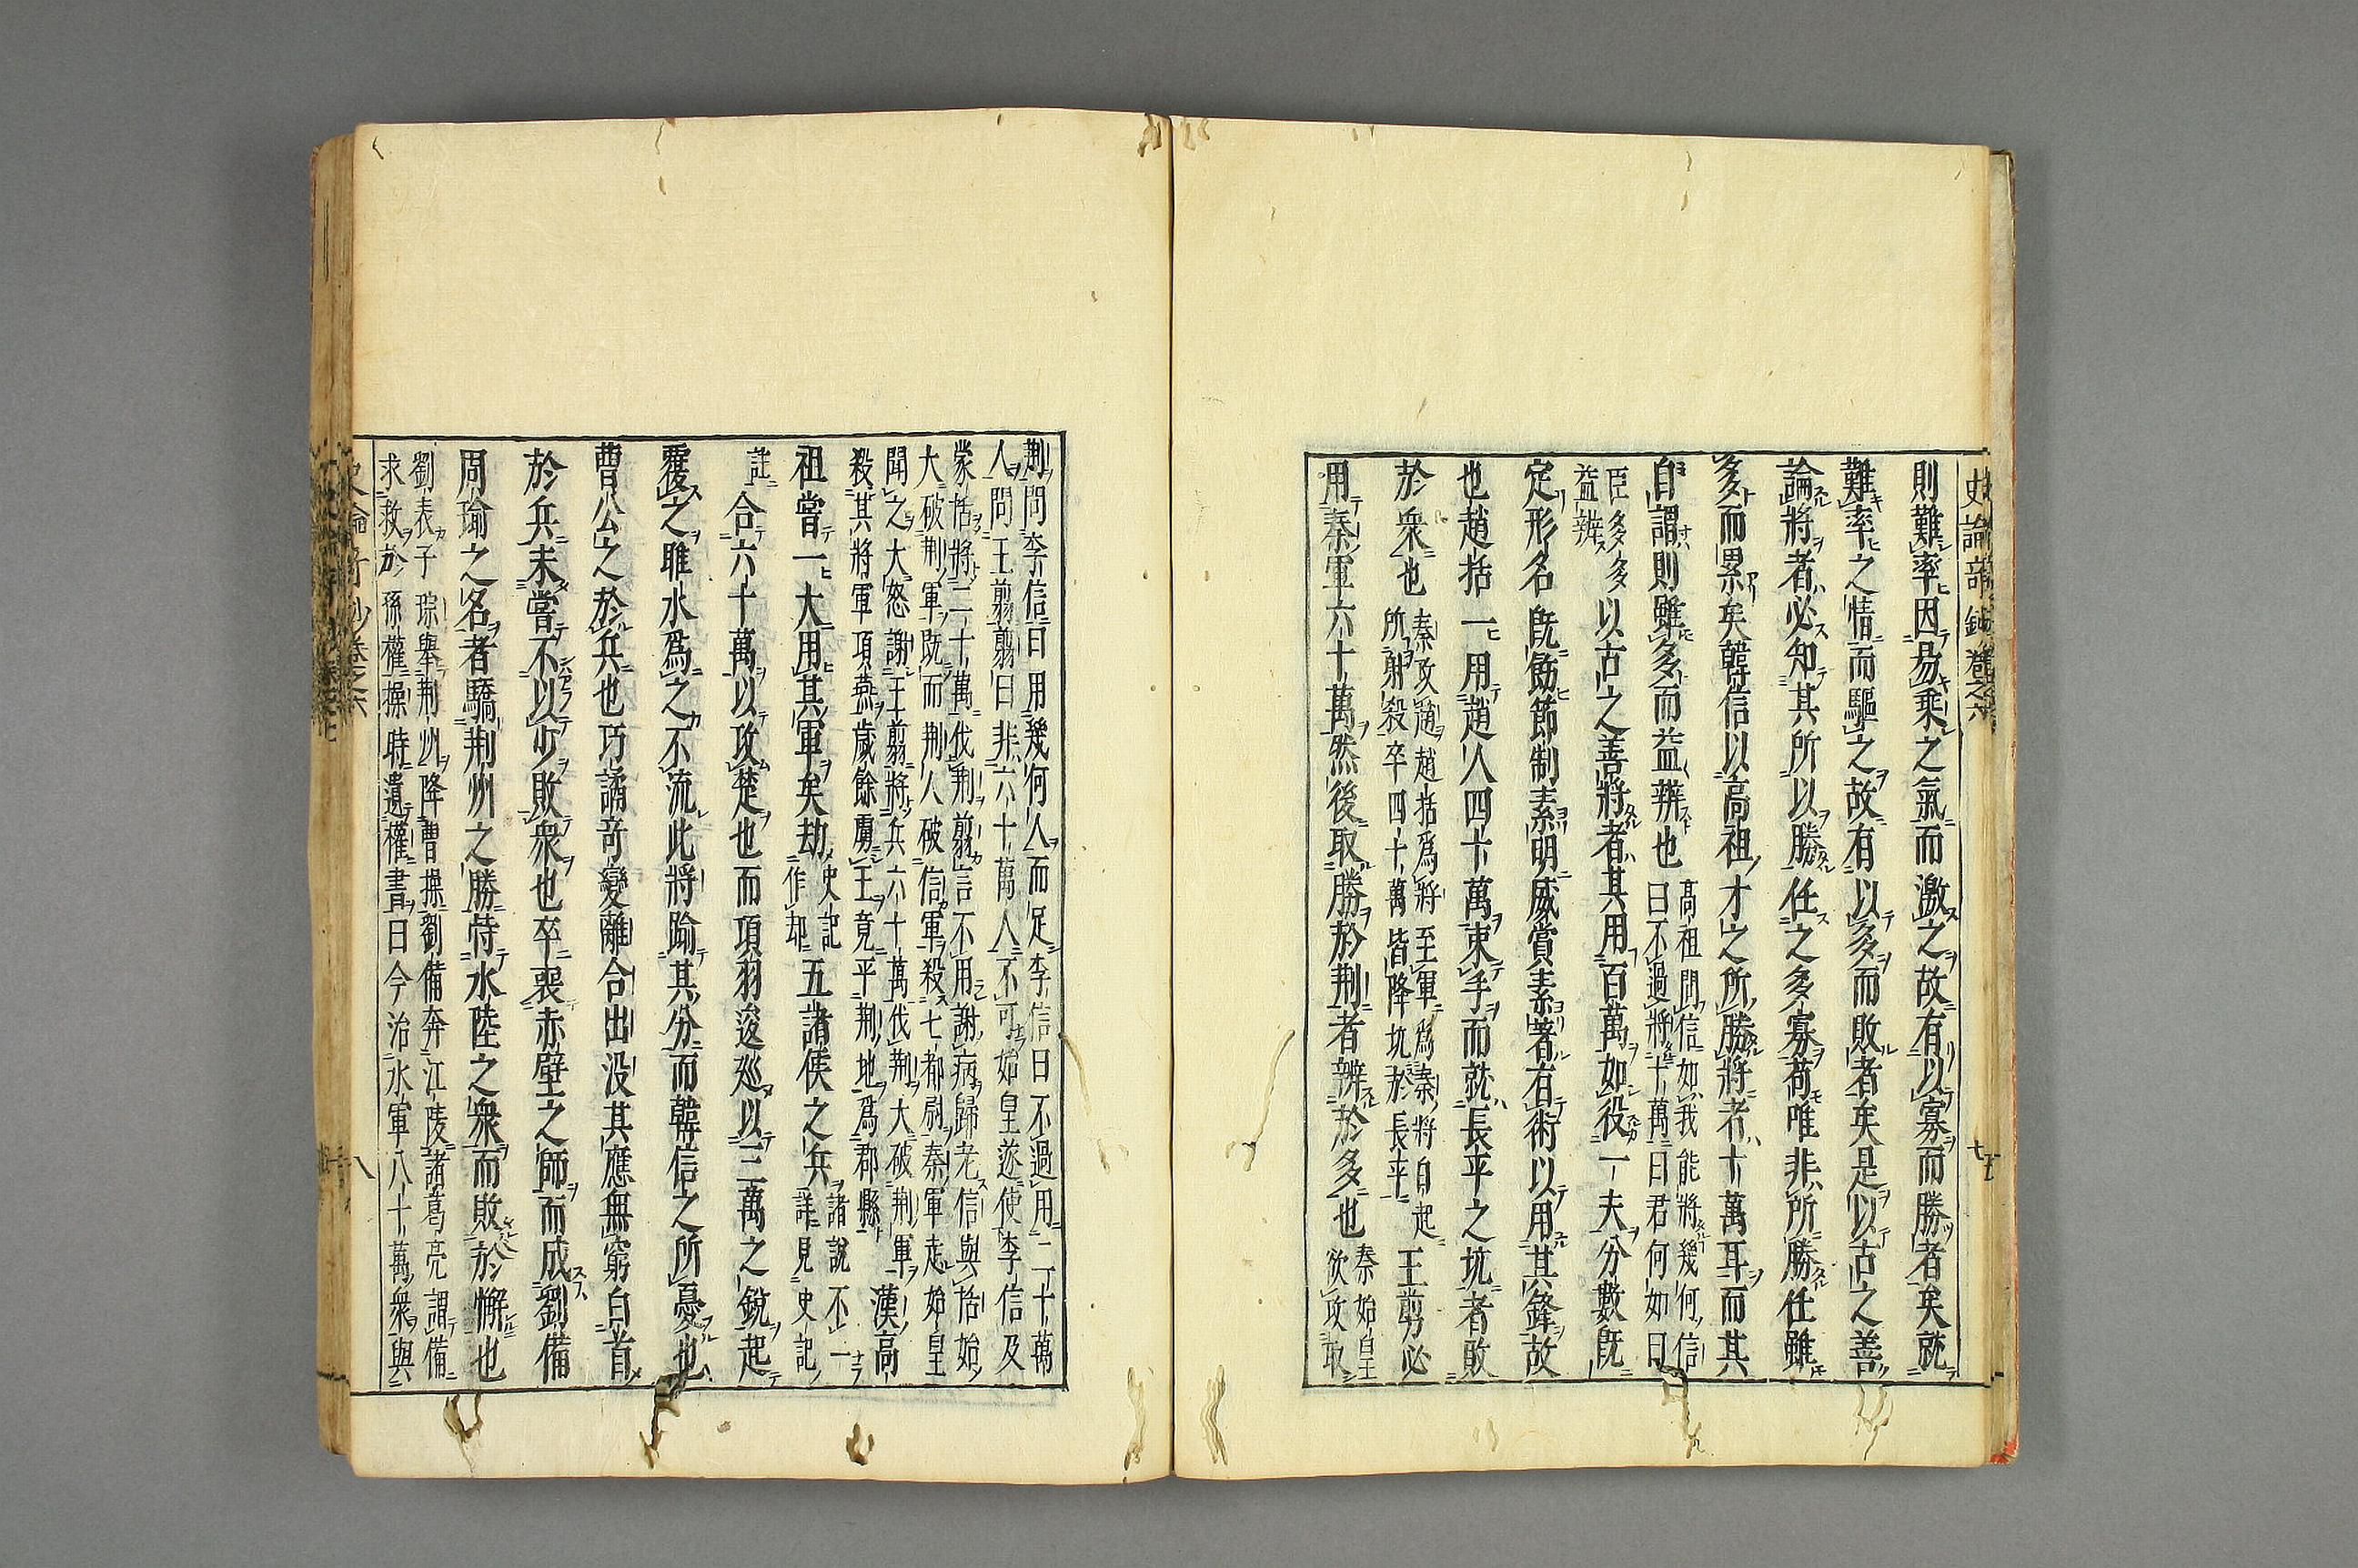 則難率因易乘之氣而激之故有以寡而勝者矣就
難率之情而驅之故有以多而敗者矣是以古之善
論將者必知其所以勝任之多寡苟唯非所勝任雖
多而累矣韓信以高祖才之所勝將者十萬耳而其
自謂則雖多而益辨也
高祖問信如我能將幾何信
曰不過將十萬曰君何如曰
臣多多
益辨
以古之善將者其用百萬如役一夫分數既
定形名既飭節制素明威賞素著有術以用其鋒故
也趙括一用趙人四十萬束手而就長平之坑者敗
於衆也
秦攻趙趙括爲將至軍爲秦將自起
所射殺卒四十萬皆降坑於長平
王翦必
用秦軍六十萬然後取勝於荆者辨於多也
秦始皇
欲攻取
荆問李信曰用幾何人而足李信曰不過用二十萬
人問王翦翦曰非六十萬人不可始皇遂使李信及
蒙恬將二十萬伐荆翦言不用謝病歸老信與恬始
大破荆軍既而荆人破信軍殺七都尉秦軍走始皇
聞之大怒謝王翦將兵六十萬伐荆大破荆軍
殺其將軍項燕歲餘虜王竟平荆地爲郡縣
漢高
祖嘗一大用其軍矣劫
史記
作却
五諸侯之兵
諸說不一
詳見史記
註
合六十萬以攻楚也而項羽逡巡以三萬之銳起
覆之睢水爲之不流此將踰其分而韓信之所憂也
曹公之於兵也巧譎竒變離合出没其應無窮白首
於兵未嘗不以少敗衆也卒喪赤壁之師而成劉備
周瑜之名者驕荆州之勝恃水陸之衆而敗於懈也
劉表子琮舉荆州降曹操劉備奔江陵諸葛亮謂備
求救於孫權操時遺權書曰今治水軍八十萬衆與
八